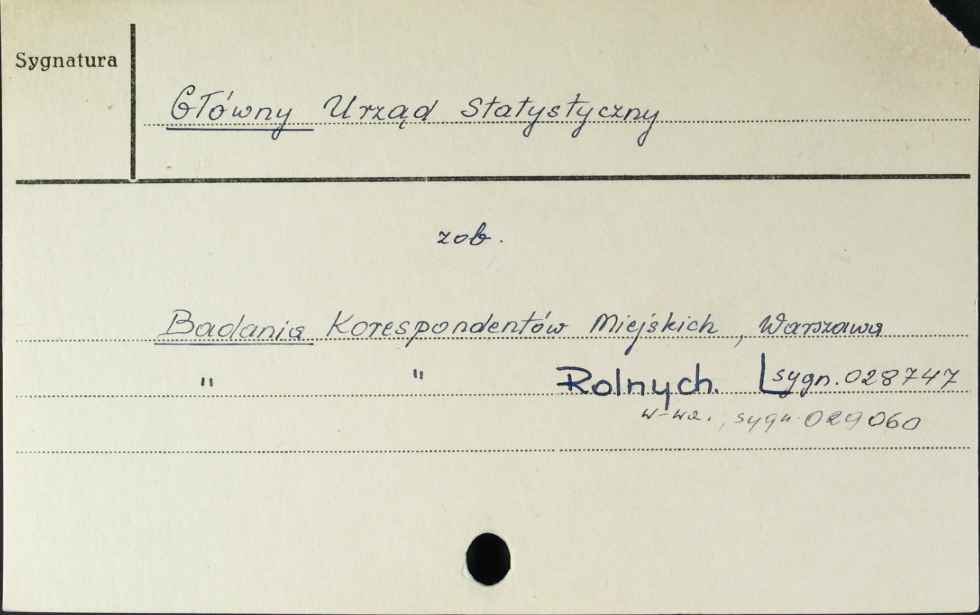 Sygnatura
Główny Urząd Statystyczny
zob.
Badania Korespondentów Miejskich, Warszawa
" " Rolnych. sygn. 028747
W-wa., sygn. 029060